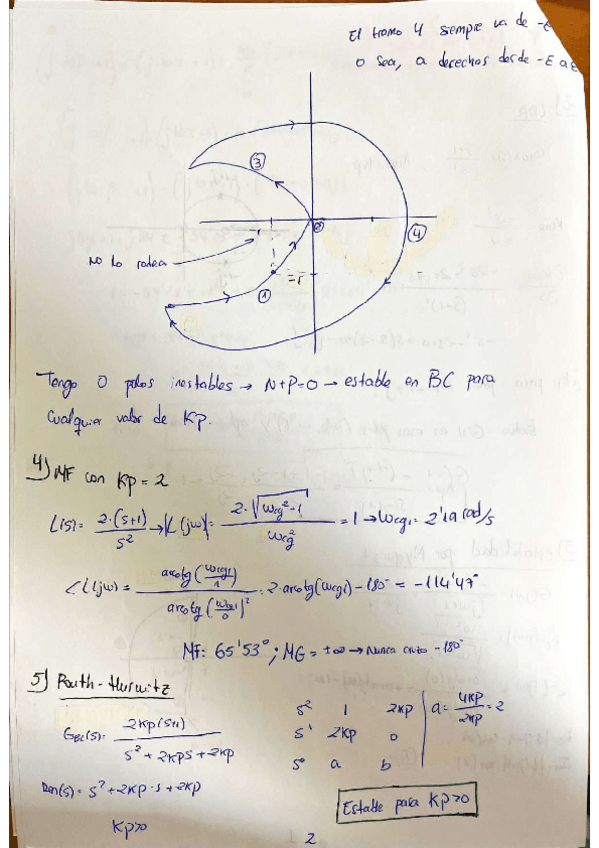 El tramo 4 siempre va de -ε
o sea, a derechas desde -ε a ε
3
4
No lo rodea
-1
1
Tengo 0 polos inestables → N+P=0 → estable en BC para
cualquier valor de Kp.
4) MF con Kp = 2
L(s) = 2·(s+1) / s² → |L(jω)| = 2·√(ωcg²+1) / ωcg² = 1 → ωcg1 = 2'19 rad/s
∠L(jω) = arctg(ωcg1/1) / arctg(ωcg1/0)² = 2·arctg(ωcg1) - 180° = -114'47°
MF: 65'53° ; MG = +∞ → Nunca cruza -180°
5) Routh-Hurwitz
GBC(s) = 2Kp(s+1) / s² + 2Kps + 2Kp
s² 1 2Kp
s¹ 2Kp 0
s⁰ a b
a = 4Kp / 2Kp = 2
Den(s) = s² + 2Kp·s + 2Kp
Kp>0
Estable para Kp>0
2